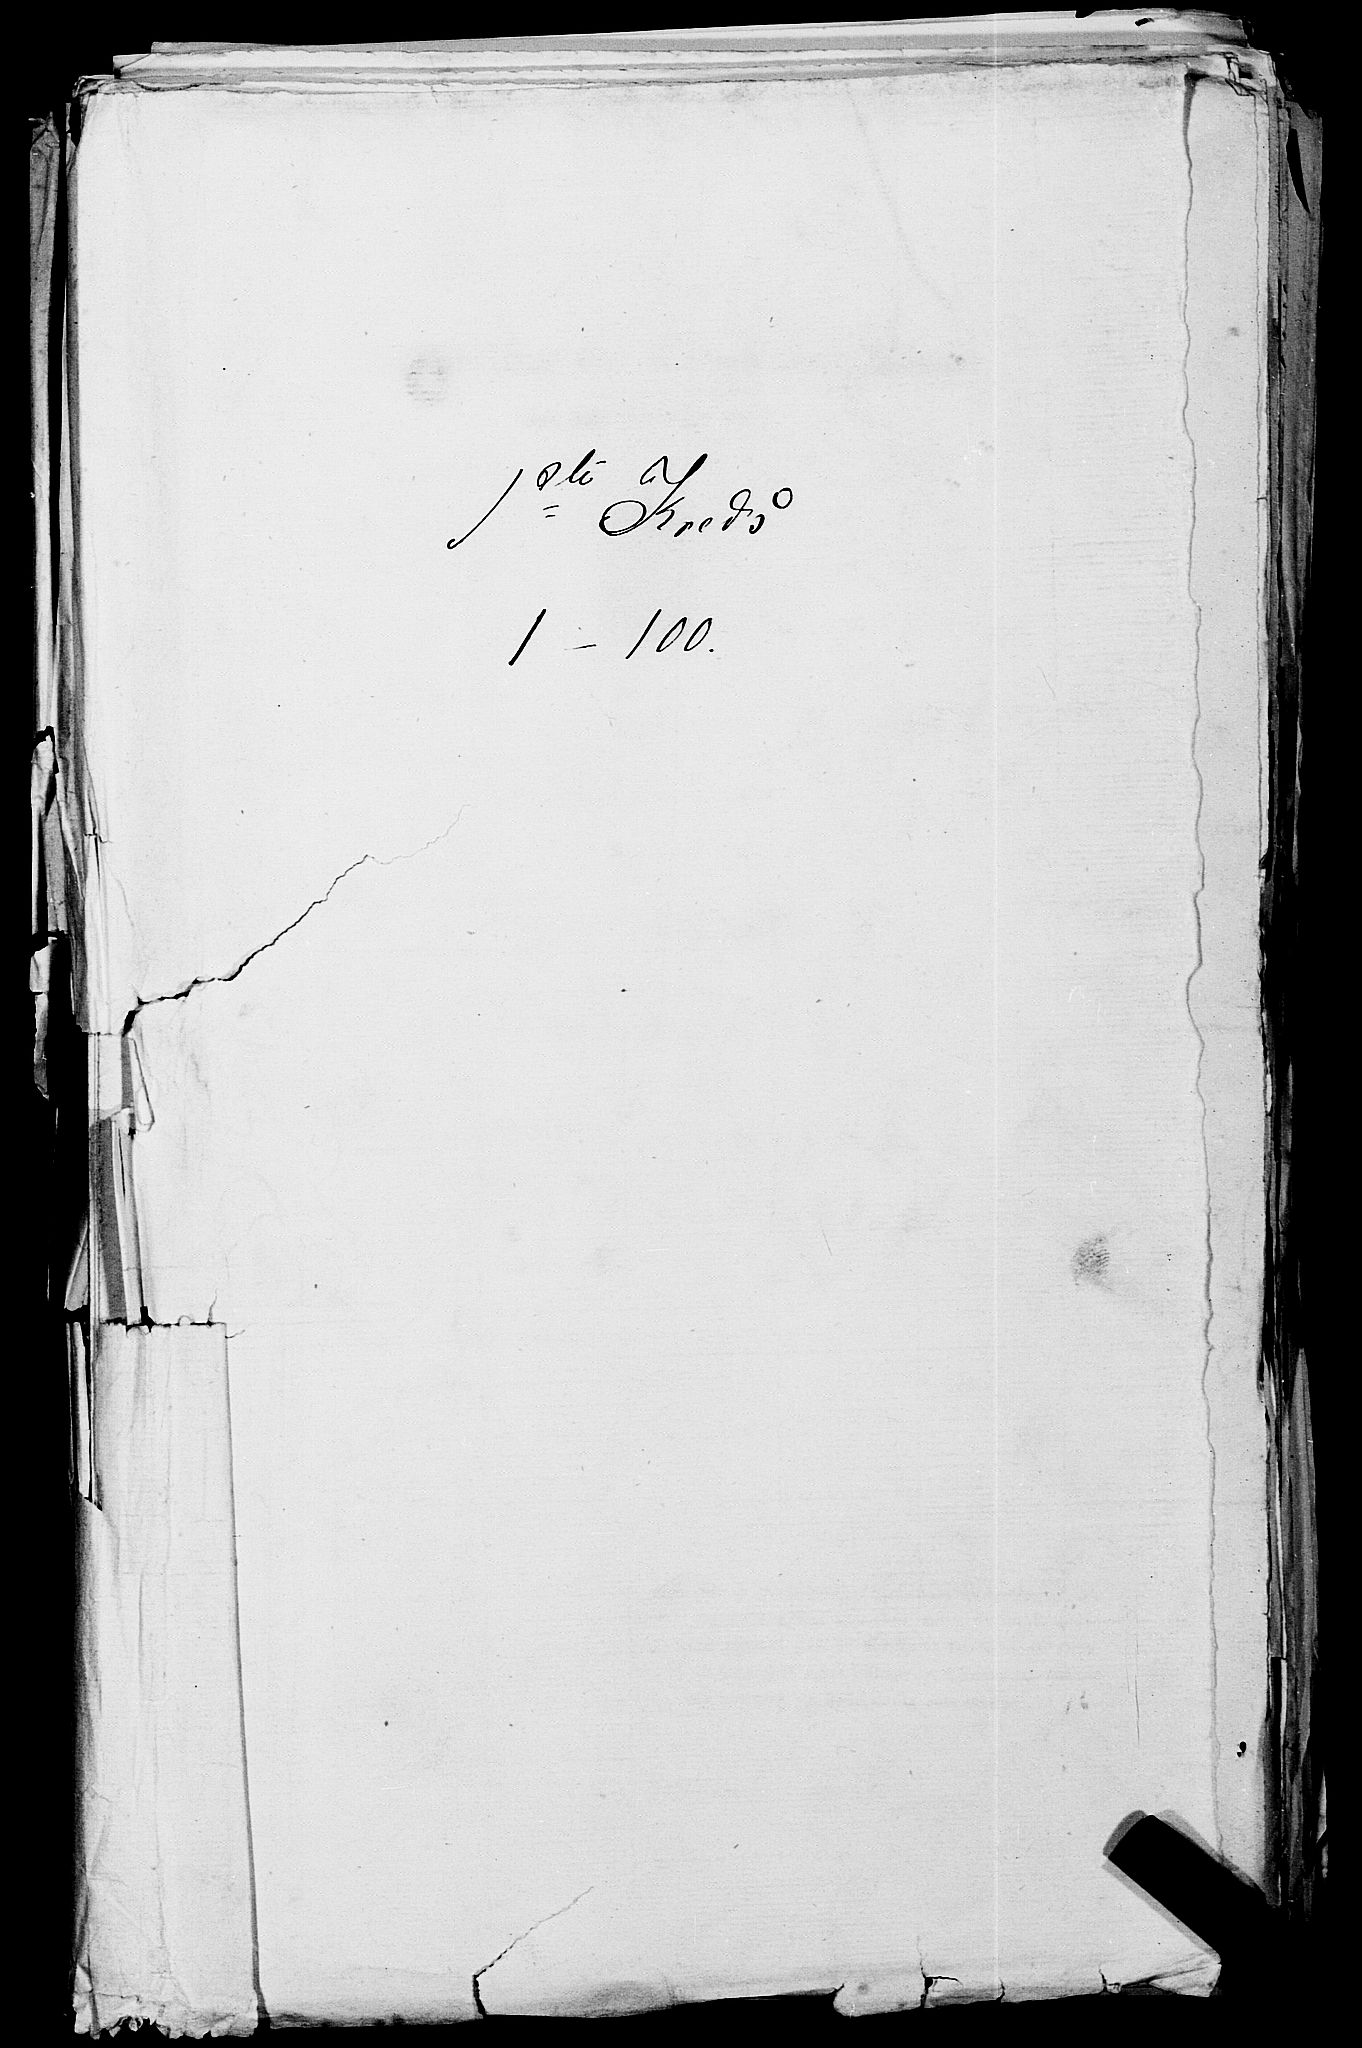 1ste Kreds
1 - 100.